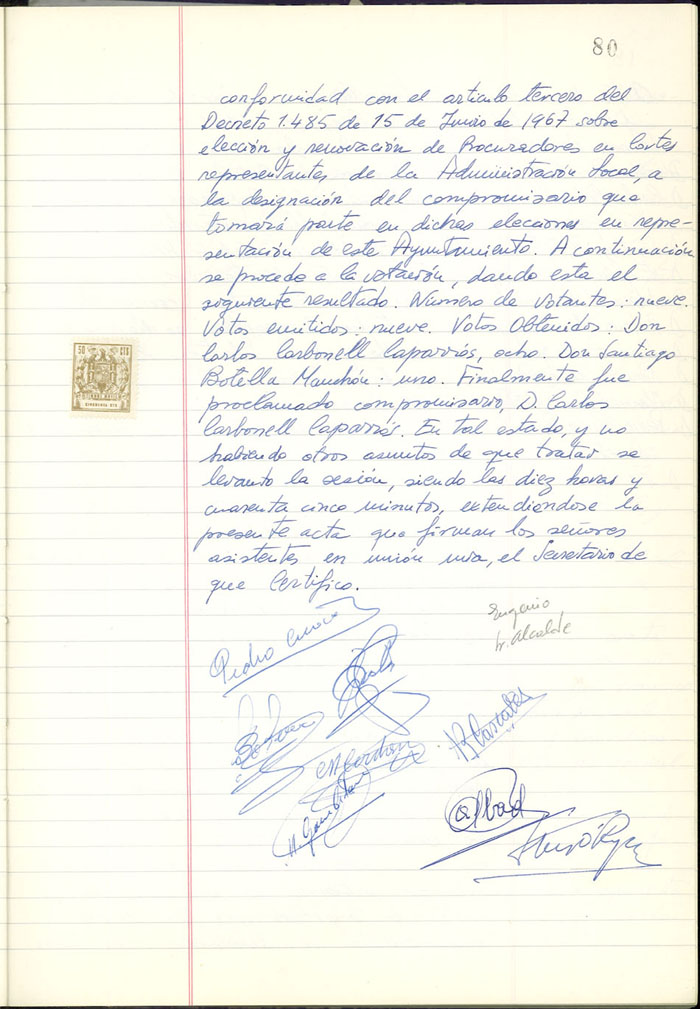 80
conformidad con el articulo tercero del
Decreto 1.485 de 15 de Junio de 1967 sobre
elección y renovación de Procuradores en Cortes
representantes de la Administración Local, a
la designación del compromisario que
tomará parte en dichas elecciones en repre-
sentación de este Ayuntamiento. A continuación
se procede a la votación, dando esta el
siguiente resultado. Número de votantes: nueve.
Votos emitidos: nueve. Votos Obtenidos: Don
Carlos Carbonell Caparrós, ocho. Don Santiago
Botella Manchón: uno. Finalmente fue
proclamado compromisario, D. Carlos
Carbonell Caparrós. En tal estado, y no
habiendo otros asuntos de que tratar se
levanto la sesión, siendo las diez horas y
cuarenta cinco minutos, extendiéndose la
presente acta que firman los señores
asistentes en unión mia, el Secretario de
que Certifico.
50 CTS
Eugenio
Sr. Alcalde
Pedro